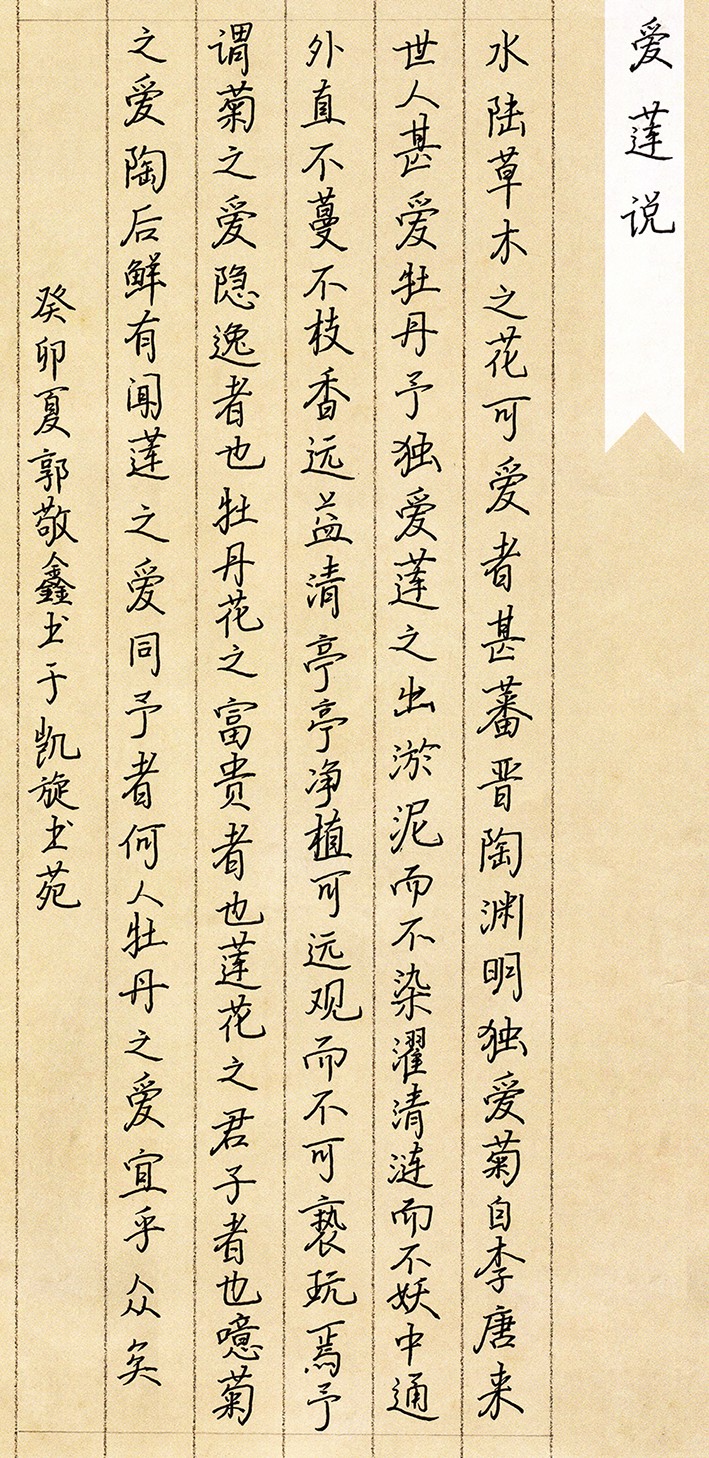 爱莲说
水陆草木之花可爱者甚蕃晋陶渊明独爱菊自李唐来
世人甚爱牡丹予独爱莲之出淤泥而不染濯清涟而不妖中通
外直不蔓不枝香远益清亭亭净植可远观而不可亵玩焉予
谓菊之爱隐逸者也牡丹花之富贵者也莲花之君子者也噫菊
之爱陶后鲜有闻莲之爱同予者何人牡丹之爱宜乎众矣
癸卯夏郭敬鑫书于凯旋书苑